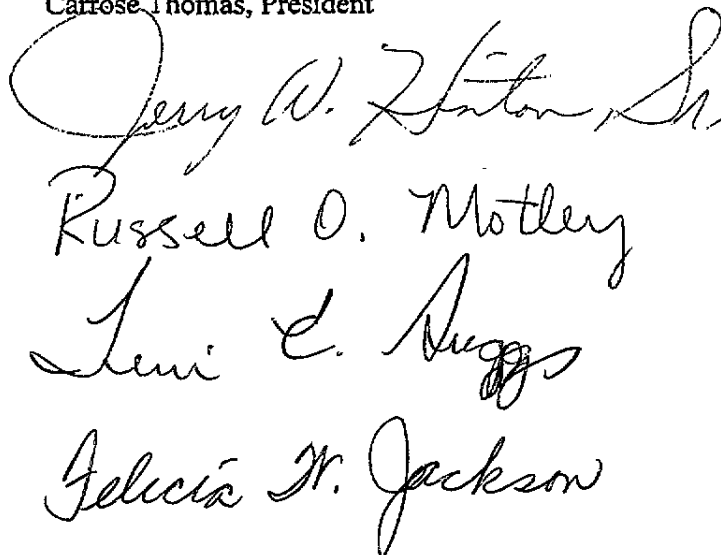 Carrose Thomas, President
Jerry W. Hinton, Sr.
Russell O. Motley
E. Suggs
Felicia W. Jackson